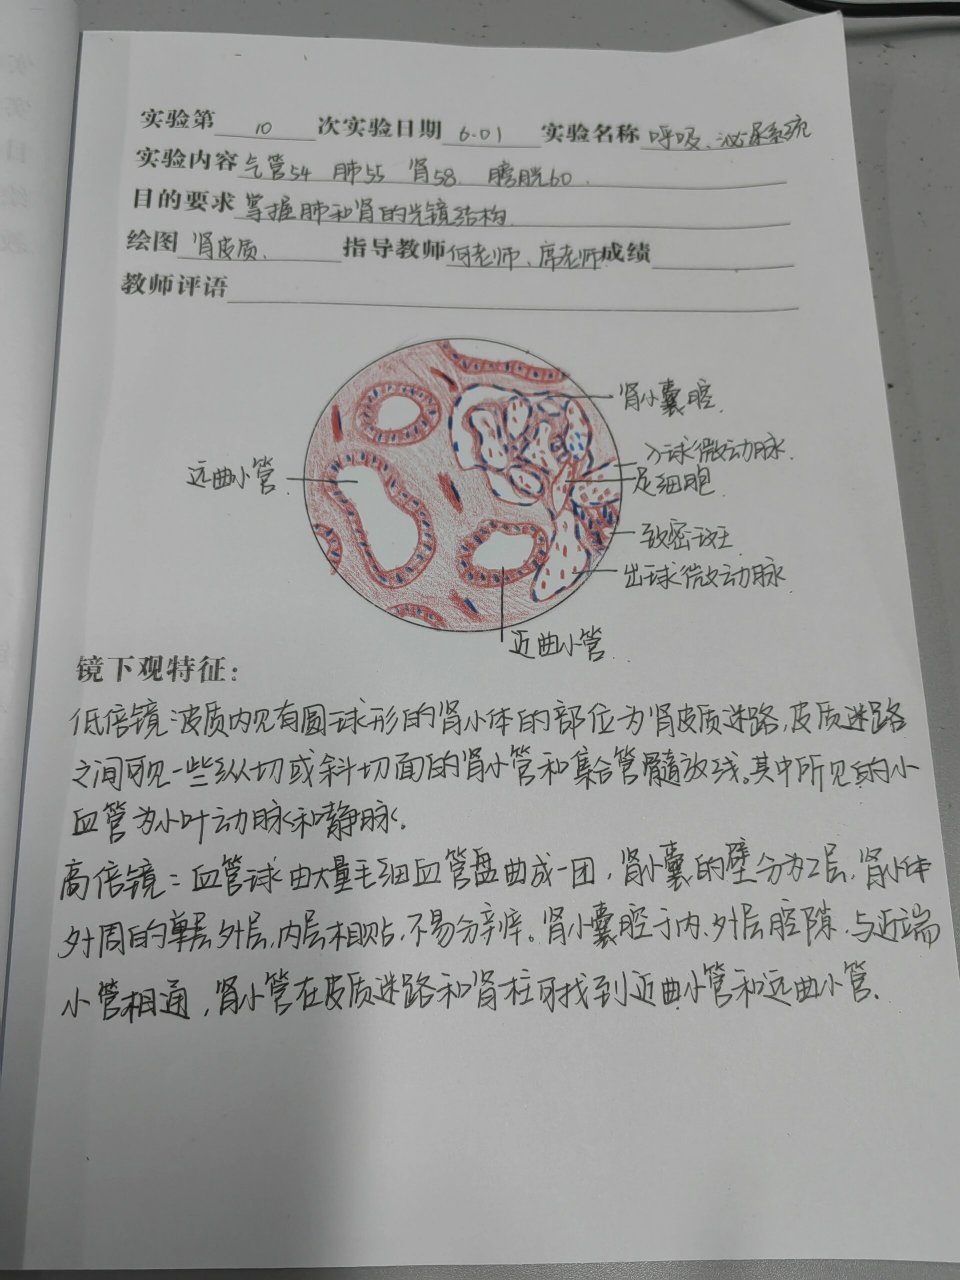 实验第 10 次实验日期 6.01 实验名称 呼吸、泌尿系统
实验内容 气管54 肺55 肾58 膀胱60.
目的要求 掌握肺和肾的光镜结构.
绘图 肾皮质. 指导教师 何老师、席老师 成绩
教师评语
肾小囊腔.
入球微动脉.
远曲小管.
足细胞
致密斑
出球微动脉
近曲小管.
镜下观特征:
低倍镜:皮质内见有圆球形的肾小体的部位为肾皮质迷路,皮质迷路
之间可见一些纵切或斜切面的肾小管和集合管髓放线。其中所见的小
血管为小叶动脉和静脉.
高倍镜:血管球由大量毛细血管盘曲成一团,肾小囊的壁分为2层,肾小体
外周的单层外层,内层相贴.不易分辨。肾小囊腔于内、外层腔隙.与近端
小管相通,肾小管在皮质迷路和肾柱可找到近曲小管和远曲小管.